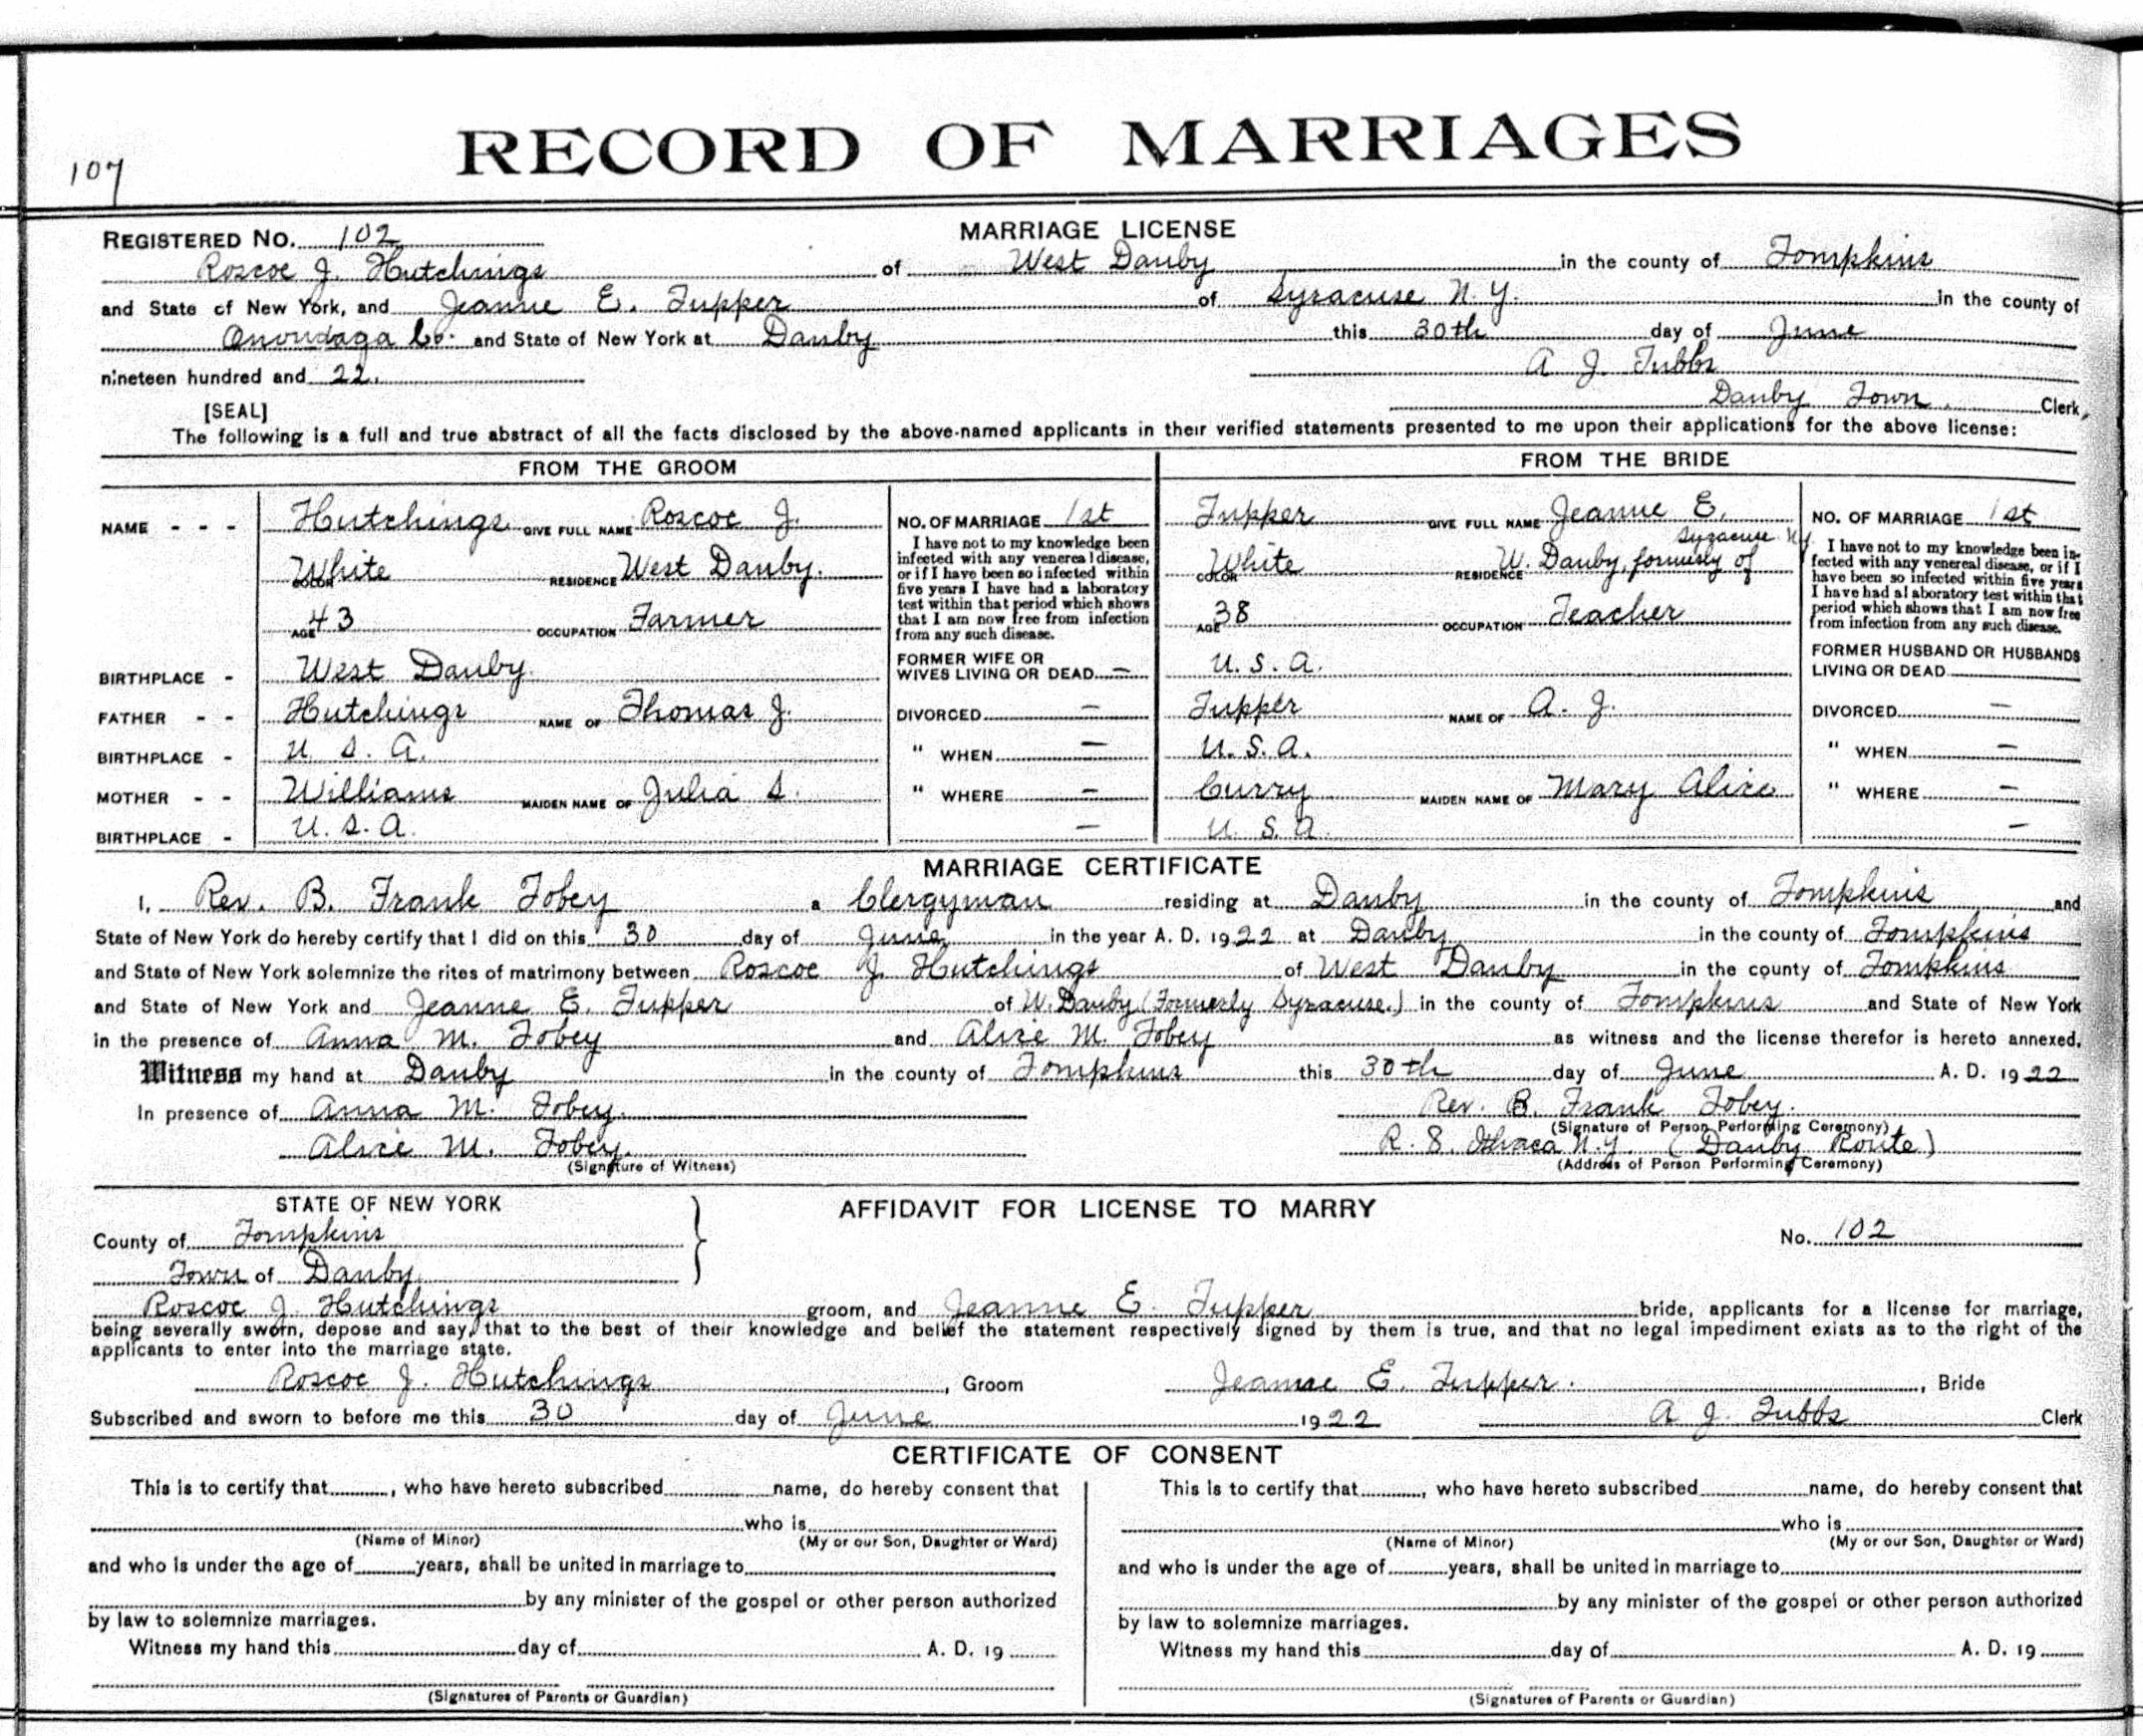 RECORD OF MARRIAGES
107
REGISTERED NO. 102 MARRIAGE LICENSE
Roscoe J. Hutchings of West Danby in the county of Tompkins
and State of New York, and Jeanne E. Tupper of Syracuse N.Y. in the county of
Onondaga Co. and State of New York at Danby this 30th day of June
nineteen hundred and 22. A J. Tubbs
[SEAL] Danby Town Clerk,
The following is a full and true abstract of all the facts disclosed by the above-named applicants in their verified statements presented to me upon their applications for the above license:
FROM THE GROOM
NAME - - - Hutchings GIVE FULL NAME Roscoe J.
COLOR White RESIDENCE West Danby.
AGE 43 OCCUPATION Farmer
BIRTHPLACE - West Danby.
FATHER - - Hutchings NAME OF Thomas J.
BIRTHPLACE - U. S. A.
MOTHER - - Williams MAIDEN NAME OF Julia S.
BIRTHPLACE - U. S. A.
NO. OF MARRIAGE 1st
I have not to my knowledge been
infected with any venereal disease,
or if I have been so infected within
five years I have had a laboratory
test within that period which shows
that I am now free from infection
from any such disease.
FORMER WIFE OR
WIVES LIVING OR DEAD —
DIVORCED —
" WHEN —
" WHERE —
—
FROM THE BRIDE
Tupper GIVE FULL NAME Jeanne E.
Syracuse N.Y.
COLOR White RESIDENCE W. Danby formerly of
AGE 38 OCCUPATION Teacher
U. S. A.
Tupper NAME OF A. J.
U. S. A.
Curry MAIDEN NAME OF Mary Alice
U. S. A.
NO. OF MARRIAGE 1st
I have not to my knowledge been in-
fected with any venereal disease, or if I
have been so infected within five years
I have had al aboratory test within that
period which shows that I am now free
from infection from any such disease.
FORMER HUSBAND OR HUSBANDS
LIVING OR DEAD
DIVORCED —
" WHEN —
" WHERE —
—
MARRIAGE CERTIFICATE
I, Rev. B. Frank Tobey a Clergyman residing at Danby in the county of Tompkins and
State of New York do hereby certify that I did on this 30 day of June in the year A. D. 1922 at Danby in the county of Tompkins
and State of New York solemnize the rites of matrimony between Roscoe J. Hutchings of West Danby in the county of Tompkins
and State of New York and Jeanne E. Tupper of W. Danby (Formerly Syracuse.) in the county of Tompkins and State of New York
in the presence of Anna M. Tobey and Alice M. Tobey as witness and the license therefor is hereto annexed.
Witness my hand at Danby in the county of Tompkins this 30th day of June A. D. 1922
In presence of Anna M. Tobey. Rev. B. Frank Tobey.
(Signature of Person Performing Ceremony)
Alice M. Tobey. R. 8. Ithaca N.Y. (Danby Route)
(Signature of Witness) (Address of Person Performing Ceremony)
STATE OF NEW YORK AFFIDAVIT FOR LICENSE TO MARRY
County of Tompkins No. 102
Town of Danby
Roscoe J. Hutchings groom, and Jeanne E. Tupper bride, applicants for a license for marriage,
being severally sworn, depose and say, that to the best of their knowledge and belief the statement respectively signed by them is true, and that no legal impediment exists as to the right of the
applicants to enter into the marriage state.
Roscoe J. Hutchings, Groom Jeanne E. Tupper., Bride
Subscribed and sworn to before me this 30 day of June 1922 A J. Tubbs Clerk
CERTIFICATE OF CONSENT
This is to certify that, who have hereto subscribed name, do hereby consent that
who is
(Name of Minor) (My or our Son, Daughter or Ward)
and who is under the age of years, shall be united in marriage to
by any minister of the gospel or other person authorized
by law to solemnize marriages.
Witness my hand this day of A. D. 19
(Signatures of Parents or Guardian)
This is to certify that, who have hereto subscribed name, do hereby consent that
who is
(Name of Minor) (My or our Son, Daughter or Ward)
and who is under the age of years, shall be united in marriage to
by any minister of the gospel or other person authorized
by law to solemnize marriages.
Witness my hand this day of A. D. 19
(Signatures of Parents or Guardian)